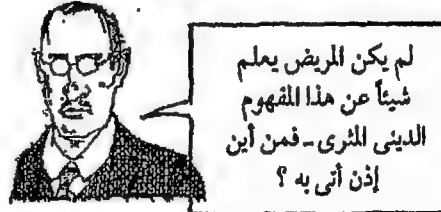 لم يكن المريض يعلم
شيئاً عن هذا المفهوم
الدينى المثرى - فمن أين
إذن أتى به ؟